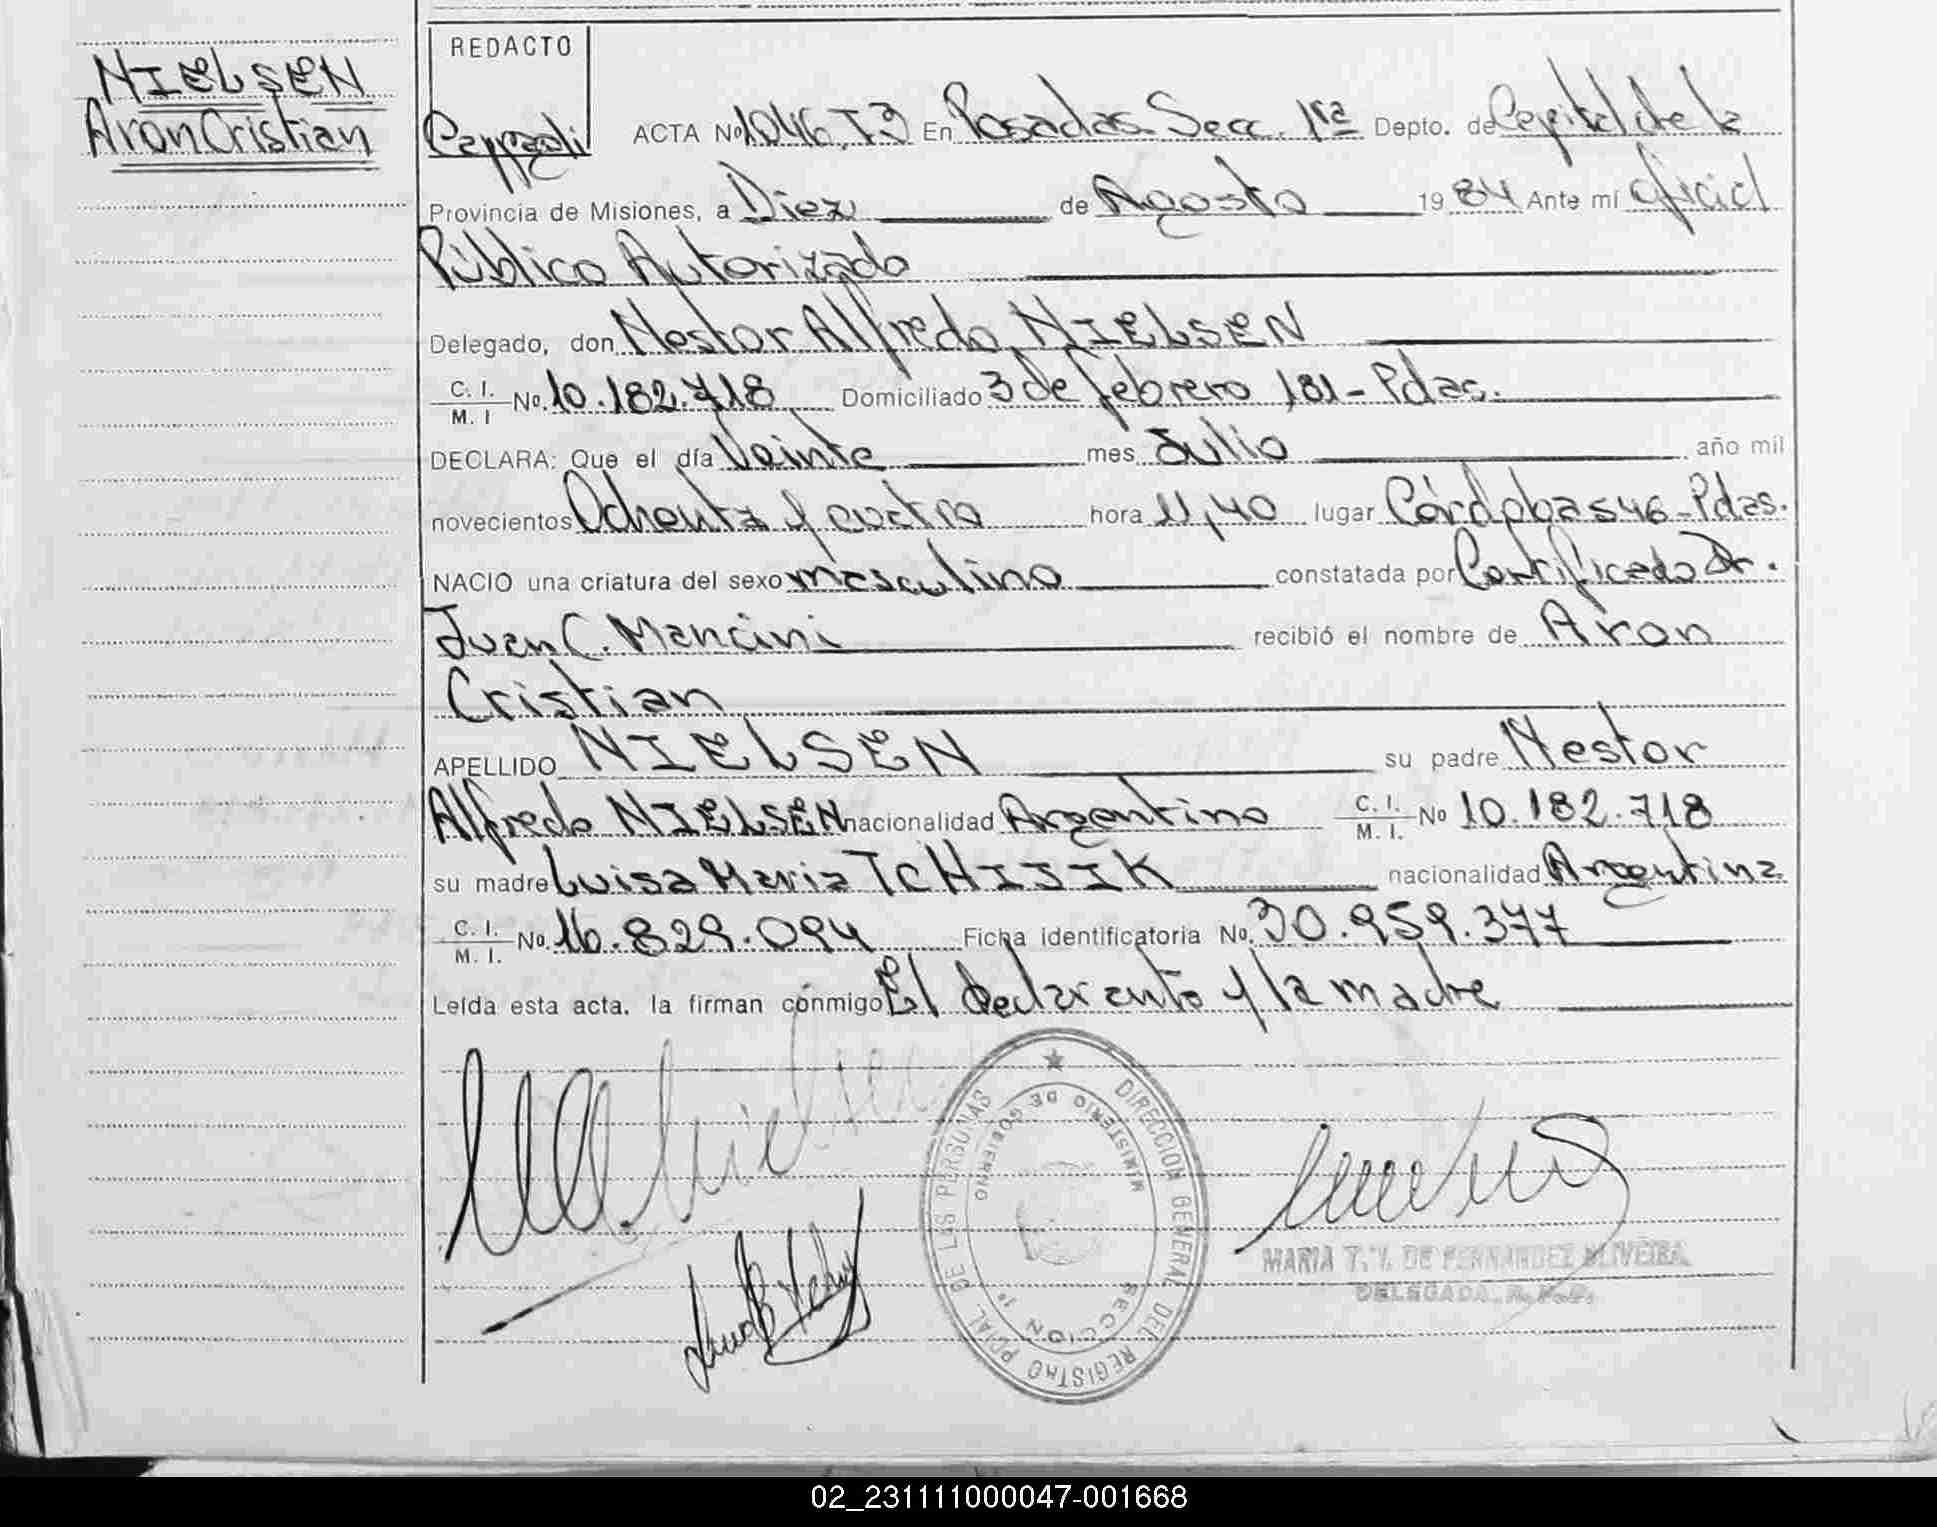 NIELSEN
Aron Cristian
REDACTO
ACTA Nº 1046, T3 En Posadas Secc. 1ra Depto. de Capital de la
Provincia de Misiones, a Diez de Agosto 1984 Ante mí oficial
Público Autorizado
Delegado, don Nestor Alfredo NIELSEN
C. I. M. I No. 10.182.718 Domiciliado 3 de febrero 181 - Pdas.
DECLARA: Que el día Veinte mes Julio año mil
novecientos Ochenta y cuatro hora 11,40 lugar Córdoba 546 - Pdas.
NACIO una criatura del sexo masculino constatada por Certificado Dr.
Juan C. Mancini recibió el nombre de Aron
Cristian
APELLIDO NIELSEN su padre Nestor
Alfredo NIELSEN nacionalidad Argentino C. I. M. I. No 10.182.718
su madre Luisa Maria TCHIJIK nacionalidad Argentina
C. I. M. I. No. 16.829.094 Ficha identificatoria No. 30.959.377
Leída esta acta, la firman conmigo El declarante y la madre
DIRECCION GENERAL DEL REGISTRO PCIAL. DE LAS PERSONAS
MINISTERIO DE GOBIERNO
SECCION 1ª
MARIA T. DE FERNANDEZ OLIVEIRA
DELEGADA
02_231111000047-001668